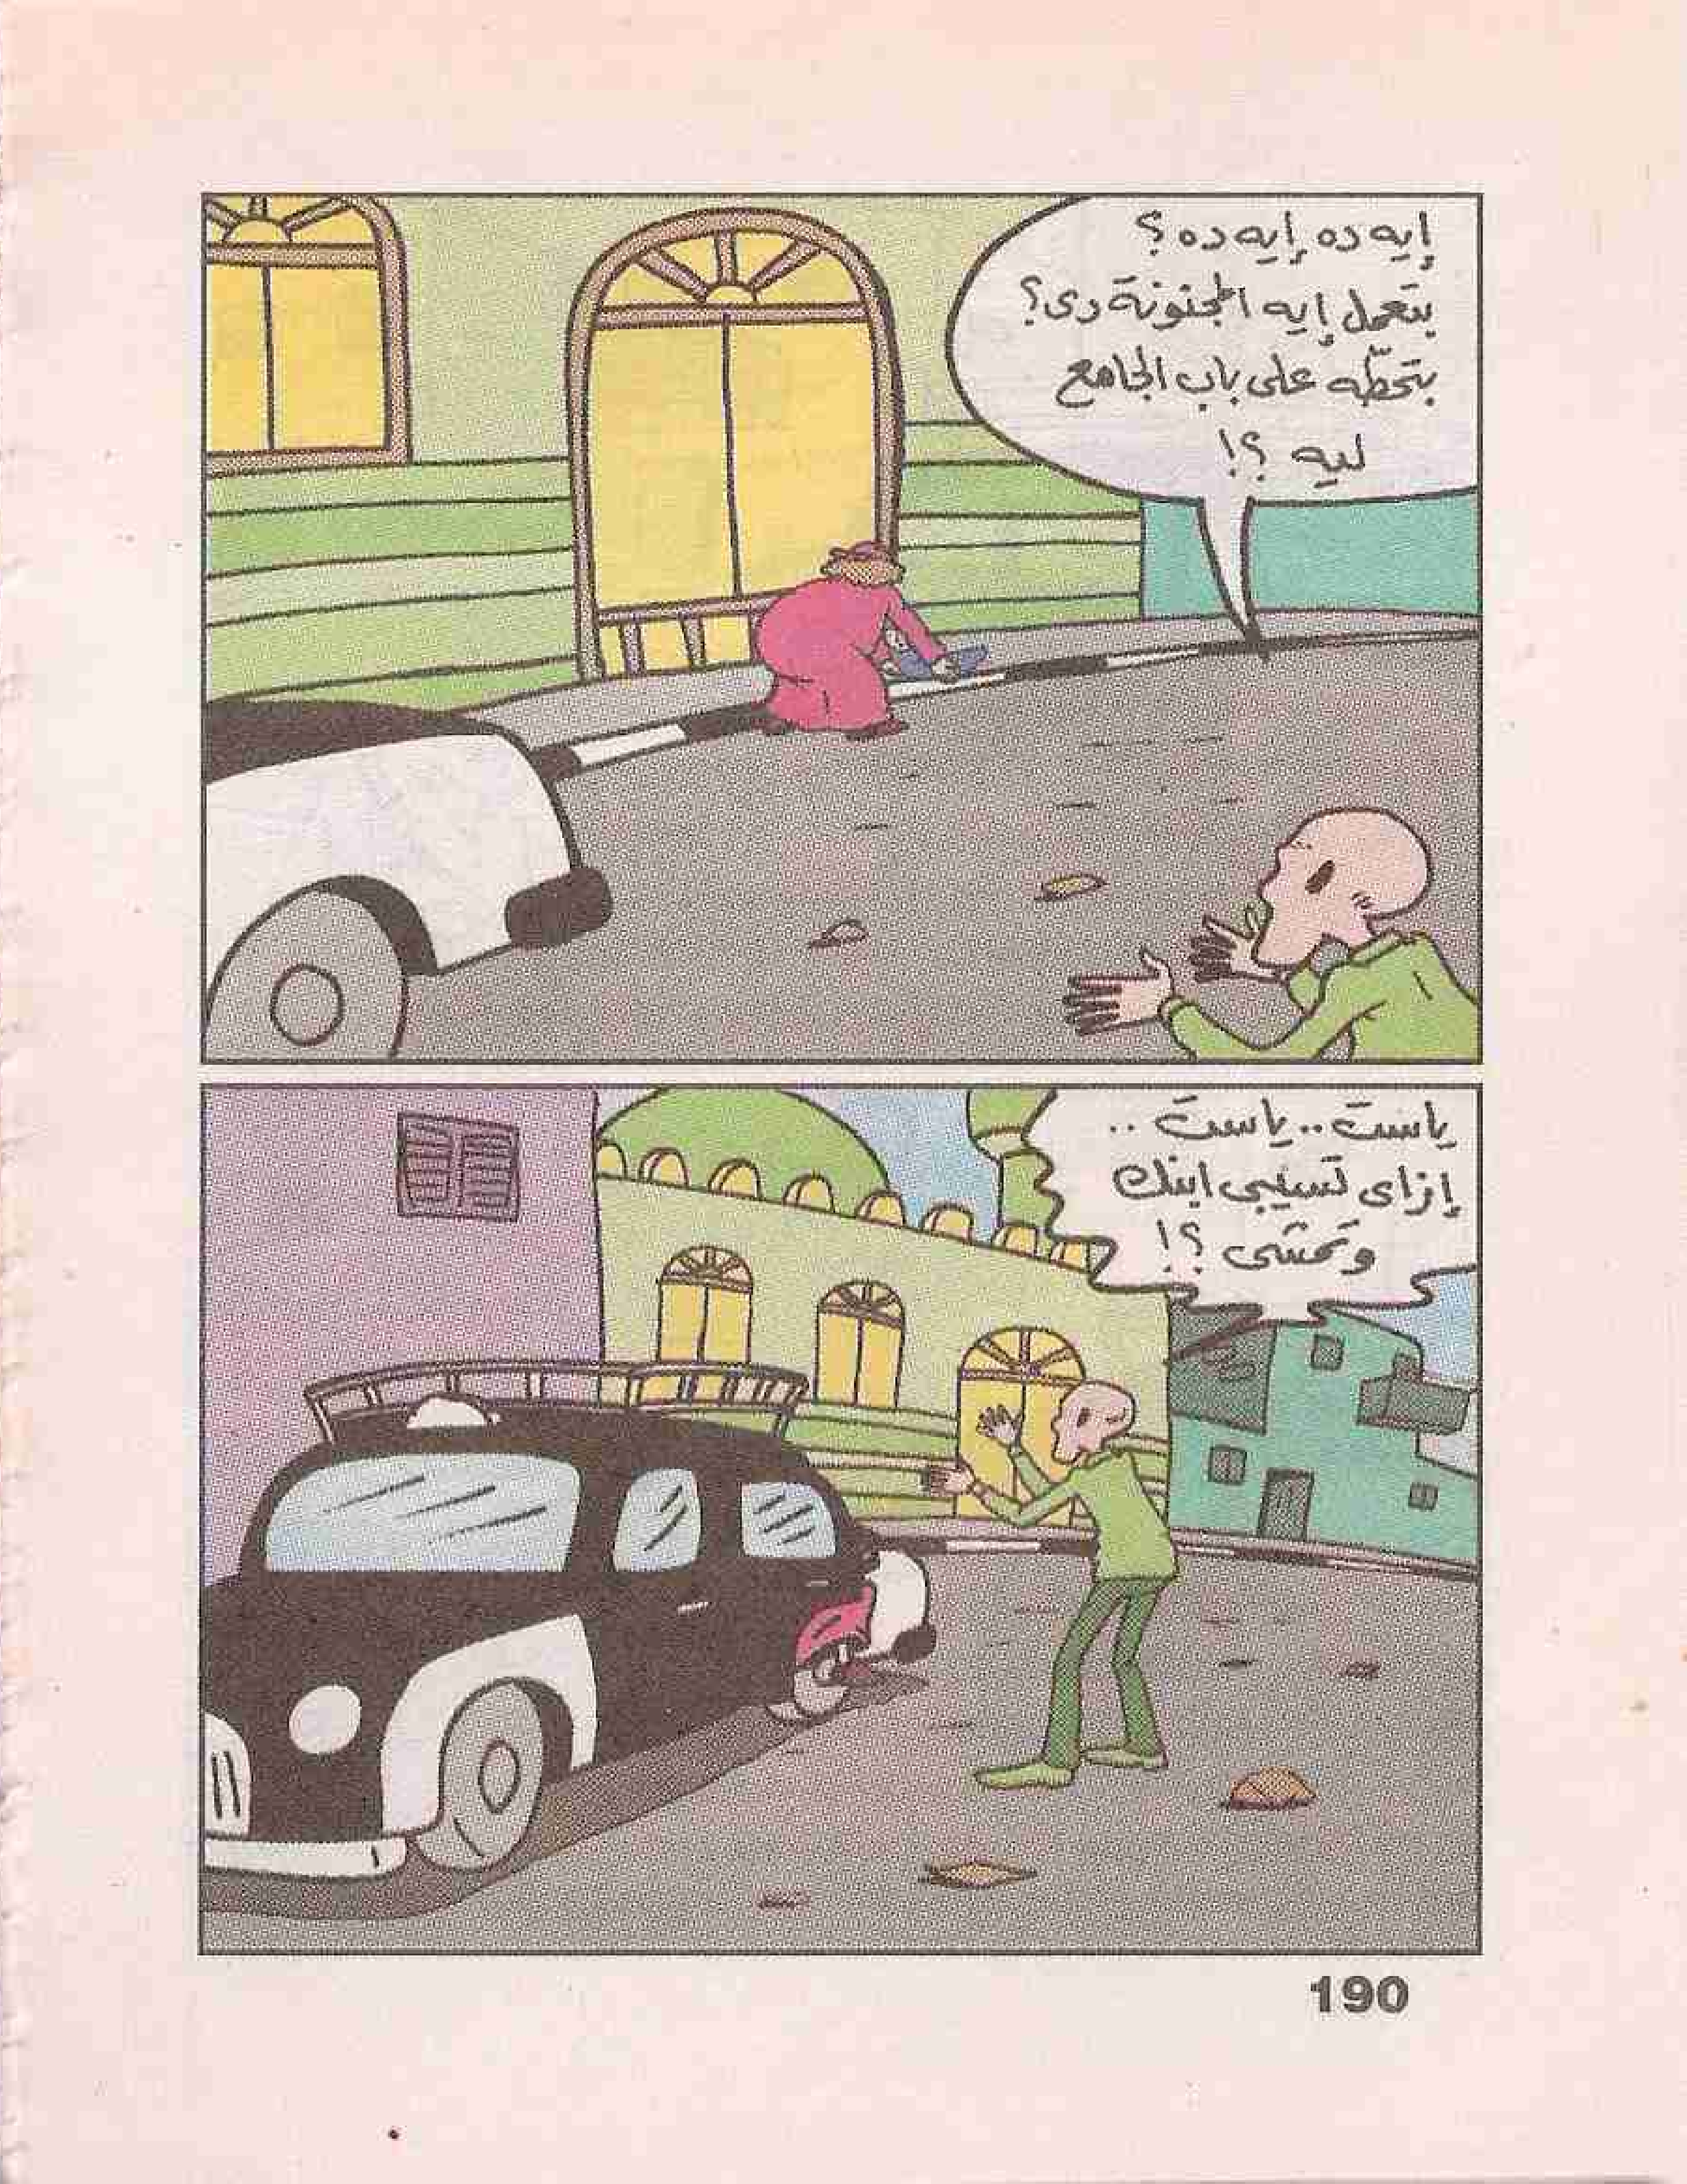 إيه ده إيه ده؟
بتعمل إيه المجنونة دى؟
بتحطّه على باب الجامع
ليه ؟!
ياست .. ياست ..
إزاى تسيبى ابنك
وتمشى ؟!
190